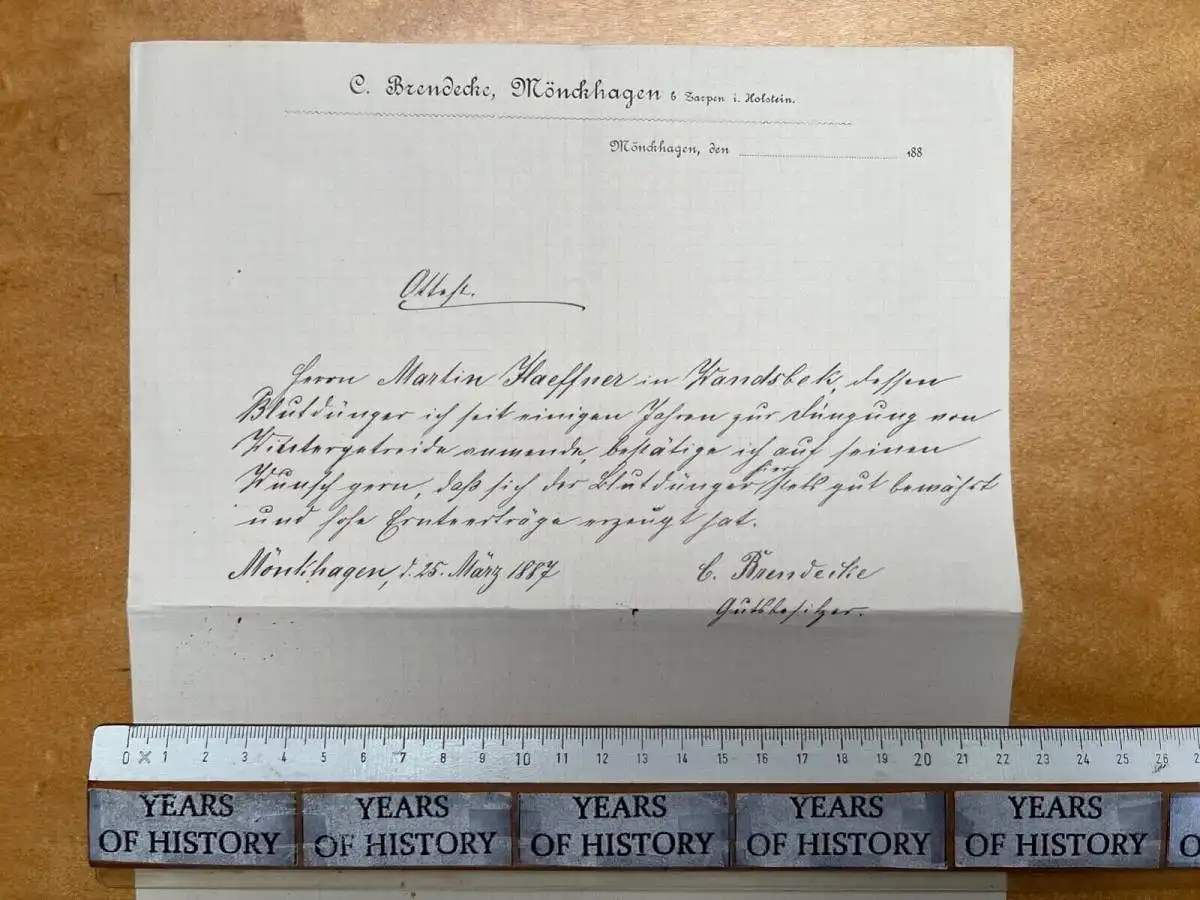 C. Brendecke, Mönckhagen b Zarpen i. Holstein.
Mönckhagen, den 188
Attest.
Herrn Martin Haeffner in Wandsbek, dessen
Blutdünger ich seit einigen Jahren zur Düngung von
Wintergetreide anwende, bestätige ich auf seinen
Wunsch gern, daß sich der Blutdünger hier stets gut bewährt
und hohe Ernteerträge erzeugt hat.
Mönkhagen, d. 25. März 1887
C. Brendecke
Gutsbesitzer.
0 1 2 3 4 5 6 7 8 9 10 11 12 13 14 15 16 17 18 19 20 21 22 23 24 25 26
YEARS OF HISTORY YEARS OF HISTORY YEARS OF HISTORY YEARS OF HISTORY YEARS OF HISTORY